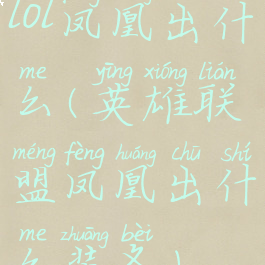 lol凤凰出什
me yīng xióng lián
么(英雄联
méng fèng huáng chū shí
盟凤凰出什
me zhuāng bèi
么装备)